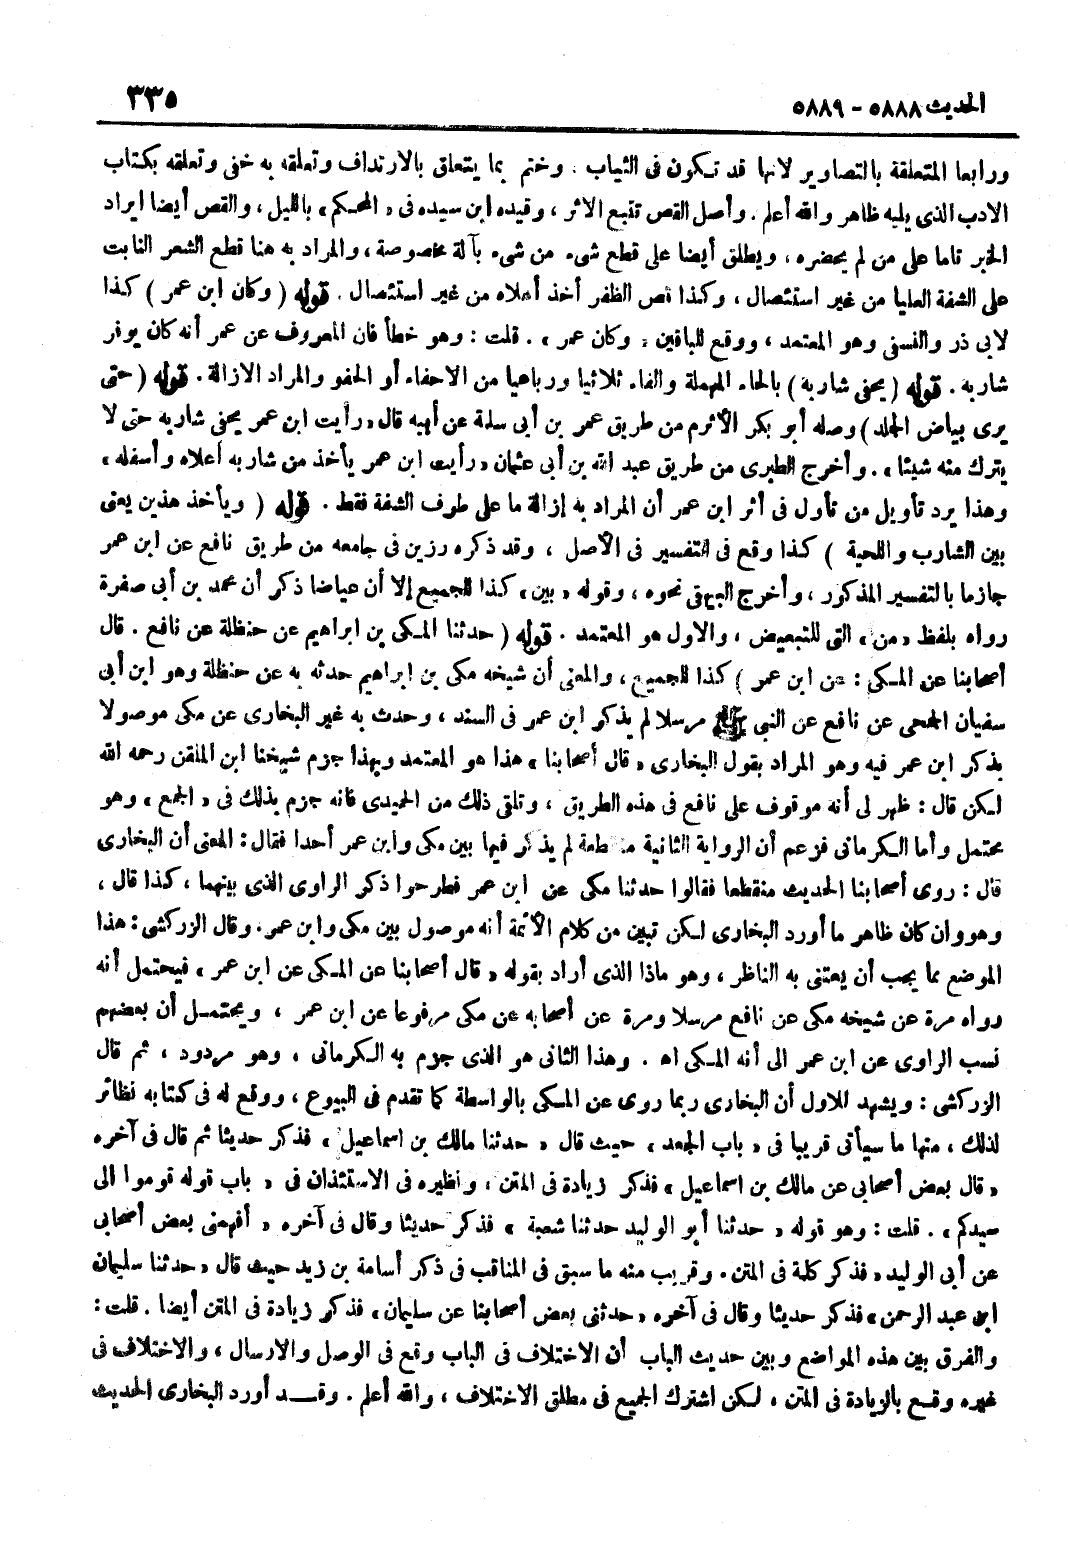 الحديث ٥٨٨٨ - ٥٨٨٩
٣٣٥
ورابعا المتعلقة بالتصاوير لانها قد تكون فى الثياب . وختم بما يتعلق بالارتداف وتعلقه به خفى وتعلقه بكتاب
الادب الذى يليه ظاهر والله أعلم . وأصل القص تتبع الاثر ، وقيده ابن سيده فى « المحكم » بالليل ، والقص أيضا ايراد
الخبر تاما على من لم يحضره ، ويطلق أيضا على قطع شىء من شىء بآلة مخصوصة ، والمراد به هنا قطع الشعر النابت
على الشفة العليا من غير استئصال ، وكذا قص الظفر أخذ أعلاه من غير استئصال . قوله ( وكان ابن عمر ) كذا
لابى ذر والنسفى وهو المعتمد ، ووقع للباقين « وكان عمر » . قلت : وهو خطأ فان المعروف عن عمر أنه كان يوفر
شاربه . قوله ( يحفى شاربه ) بالحاء المهملة والفاء ثلاثيا ورباعيا من الاحفاء أو الحفو والمراد الازالة . قوله ( حتى
يرى بياض الجلد ) وصله أبو بكر الأثرم من طريق عمر بن أبى سلمة عن أبيه قال « رأيت ابن عمر يحفى شاربه حتى لا
يترك منه شيئا » . وأخرج الطبرى من طريق عبد الله بن أبى عثمان « رأيت ابن عمر يأخذ من شاربه أعلاه وأسفله »
وهذا يرد تأويل من تأول فى أثر ابن عمر أن المراد به إزالة ما على طرف الشفة فقط . قوله ( ويأخذ هذين يعنى
بين الشارب واللحية ) كذا وقع فى التفسير فى الأصل ، وقد ذكره رزين فى جامعه من طريق نافع عن ابن عمر
جازما بالتفسير المذكور ، وأخرج البيهقى نحوه ، وقوله « بين » كذا للجميع إلا أن عياضا ذكر أن محمد بن أبى صفرة
رواه بلفظ « من » التى للتبعيض ، والاول هو المعتمد . قوله ( حدثنا المكى بن ابراهيم عن حنظلة عن نافع . قال
أصحابنا عن المكى : عن ابن عمر ) كذا للجميع ، والمعنى أن شيخه مكى بن ابراهيم حدثه به عن حنظلة وهو ابن أبى
سفيان الجمحى عن نافع عن النبى ﷺ مرسلا لم يذكر ابن عمر فى السند ، وحدث به غير البخارى عن مكى موصولا
بذكر ابن عمر فيه وهو المراد بقول البخارى « قال أصحابنا » هذا هو المعتمد وبهذا جزم شيخنا ابن الملقن رحمه الله
لكن قال : ظهر لى أنه موقوف على نافع فى هذه الطريق ، وتلقى ذلك من الحميدى فانه جزم بذلك فى « الجمع » وهو
محتمل وأما الكرمانى فزعم أن الرواية الثانية منقطعة لم يذكر فيها بين مكى وابن عمر أحدا فقال : المعنى أن البخارى
قال : روى أصحابنا الحديث منقطعا فقالوا حدثنا مكى عن ابن عمر فطرحوا ذكر الراوى الذى بينهما ، كذا قال ،
وهو وان كان ظاهر ما أورد البخارى لكن تبين من كلام الأئمة أنه موصول بين مكى وابن عمر . وقال الزركشى : هذا
الموضع مما يجب أن يعتنى به الناظر ، وهو ماذا الذى أراد بقوله « قال أصحابنا عن المكى عن ابن عمر » فيحتمل أنه
رواه مرة عن شيخه مكى عن نافع مرسلا ومرة عن أصحابه عن مكى مرفوعا عن ابن عمر ، ويحتمل أن بعضهم
نسب الراوى عن ابن عمر الى أنه المكى اه . وهذا الثانى هو الذى جزم به الكرمانى ، وهو مردود ، ثم قال
الزركشى : ويشهد للاول أن البخارى ربما روى عن المكى بالواسطة كما تقدم فى البيوع ، ووقع له فى كتابه نظائر
لذلك ، منها ما سيأتى قريبا فى « باب الجعد » حيث قال « حدثنا مالك بن اسماعيل » فذكر حديثا ثم قال فى آخره
« قال بعض أصحابى عن مالك بن اسماعيل » فذكر زيادة فى المتن ، ونظيره فى الاستئذان فى « باب قوله قوموا الى
سيدكم » . قلت : وهو قوله « حدثنا أبو الوليد حدثنا شعبة » فذكر حديثا وقال فى آخره « أفهمنى بعض أصحابى
عن أبى الوليد » فذكر كلمة فى المتن . وقريب منه ما سبق فى المناقب فى ذكر أسامة بن زيد حيث قال « حدثنا سليمان
ابن عبد الرحمن » فذكر حديثا وقال فى آخره « حدثنى بعض أصحابنا عن سليمان » فذكر زيادة فى المتن أيضا . قلت :
والفرق بين هذه المواضع وبين حديث الباب أن الاختلاف فى الباب وقع فى الوصل والارسال ، والاختلاف فى
غيره وقع بالزيادة فى المتن ، لكن اشترك الجميع فى مطلق الاختلاف ، والله أعلم . وقد أورد البخارى الحديث